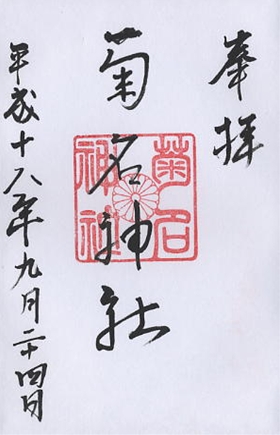 奉拝
菊名神社
菊名
神社
平成十八年九月二十四日